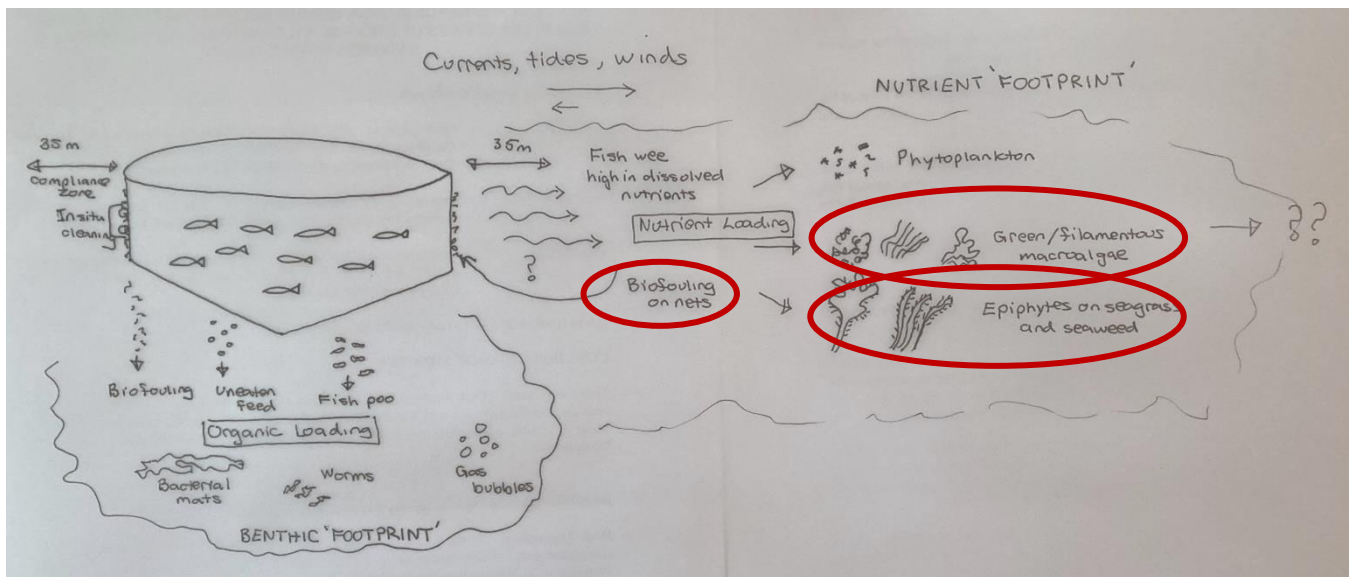 Currents, tides, winds
NUTRIENT 'FOOTPRINT'
35m
35m
compliance
zone
Insitu
cleaning
Fish wee
high in dissolved
nutrients
Nutrient Loading
?
Biofouling
on nets
Phytoplankton
Green/filamentous
macroalgae
Epiphytes on seagrass
and seaweed
??
Biofouling
Uneaten
feed
Fish poo
Organic Loading
Bacterial
mats
Worms
Gas
bubbles
BENTHIC 'FOOTPRINT'